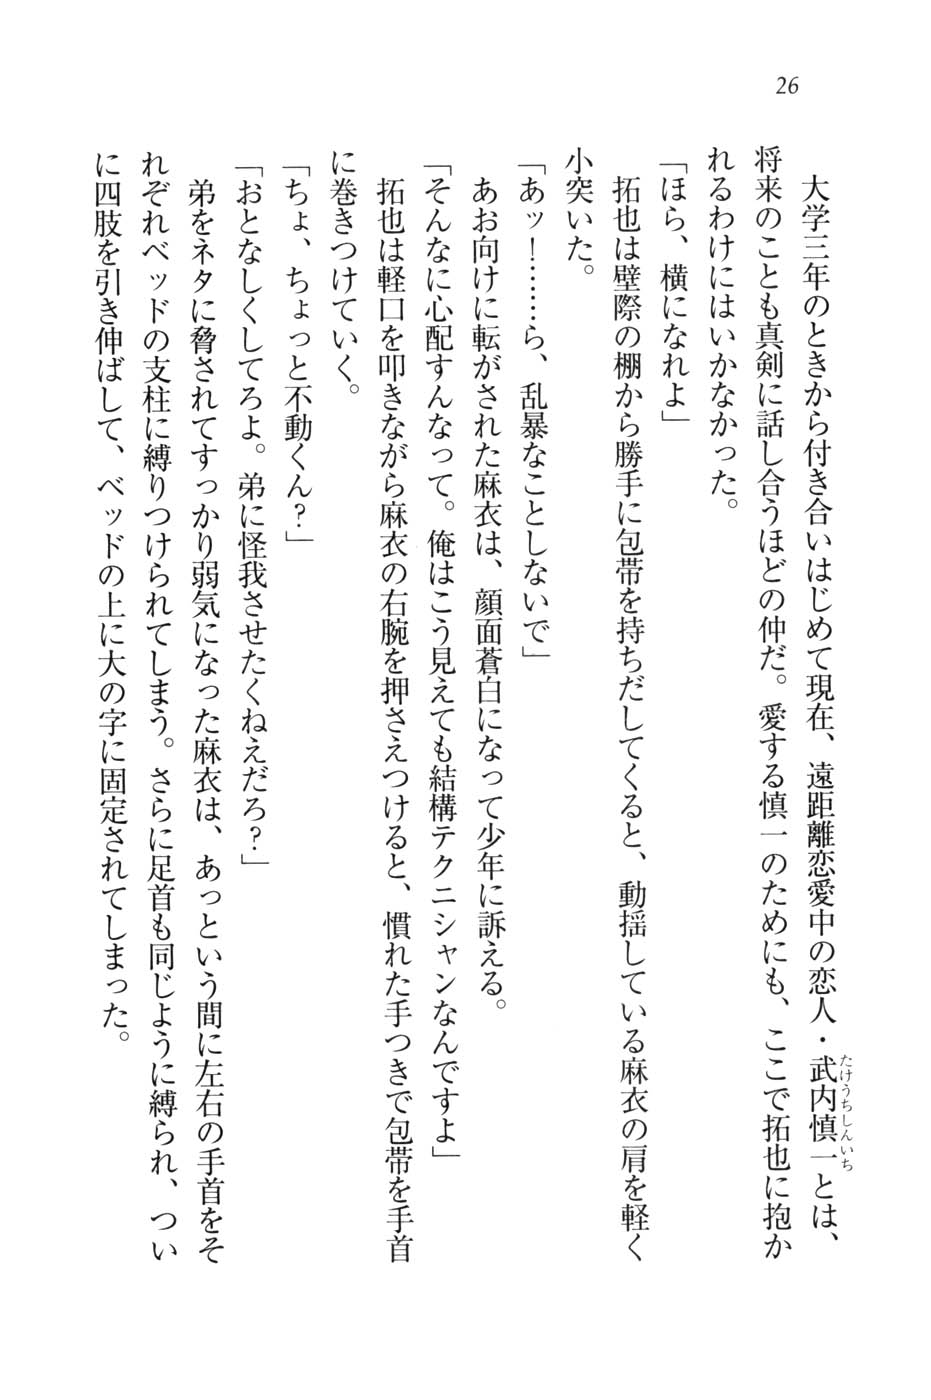 26
大学三年のときから付き合いはじめて現在、遠距離恋愛中の恋人・武内慎一とは、
たけうちしんいち
将来のことも真剣に話し合うほどの仲だ。愛する慎一のためにも、ここで拓也に抱か
れるわけにはいかなかった。
「ほら、横になれよ」
拓也は壁際の棚から勝手に包帯を持ちだしてくると、動揺している麻衣の肩を軽く
小突いた。
「あッ！……ら、乱暴なことしないで」
あお向けに転がされた麻衣は、顔面蒼白になって少年に訴える。
「そんなに心配すんなって。俺はこう見えても結構テクニシャンなんですよ」
拓也は軽口を叩きながら麻衣の右腕を押さえつけると、慣れた手つきで包帯を手首
に巻きつけていく。
「ちょ、ちょっと不動くん？」
「おとなしくしてろよ。弟に怪我させたくねえだろ？」
弟をネタに脅されてすっかり弱気になった麻衣は、あっという間に左右の手首をそ
れぞれベッドの支柱に縛りつけられてしまう。さらに足首も同じように縛られ、つい
に四肢を引き伸ばして、ベッドの上に大の字に固定されてしまった。